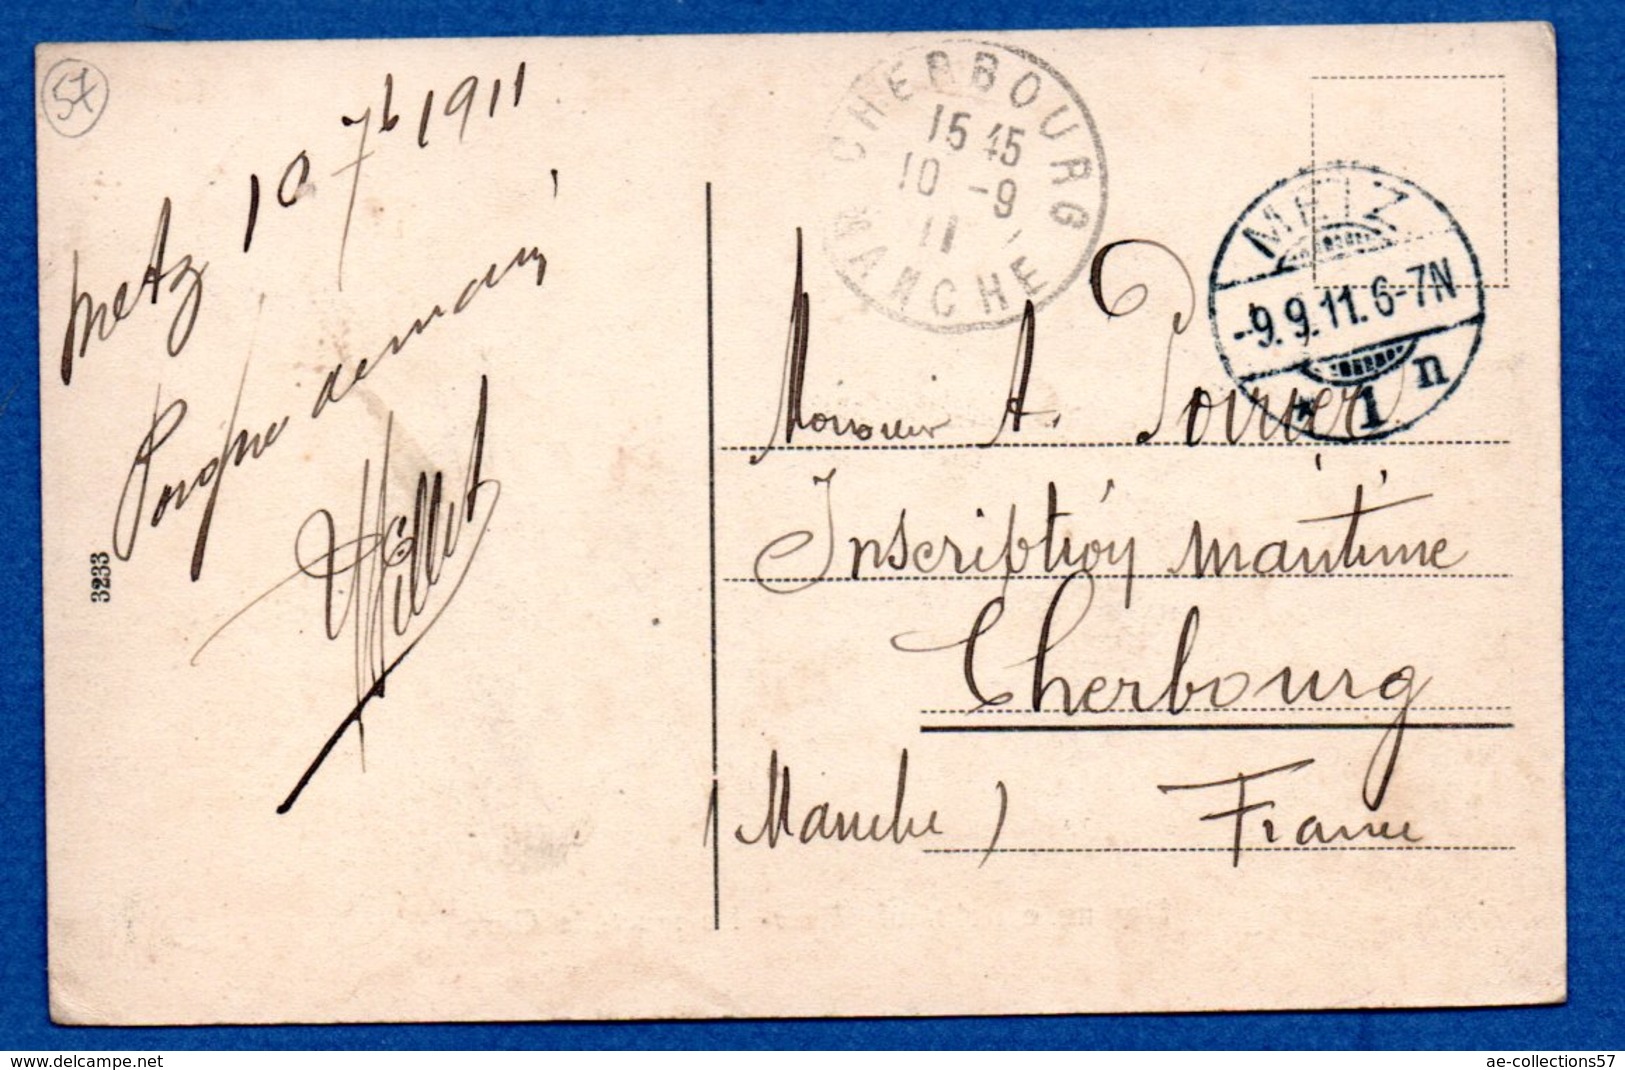 57
Metz 10 7b 1911
demain
3233
CHERBOURG
15 45
10 -9
11
MANCHE
METZ
-9.9.11.6-7N
* 1 n
Monsieur A. Poirier
Inscription maritime
Cherbourg
(Manche) France
delcampe.net
ae-collections57